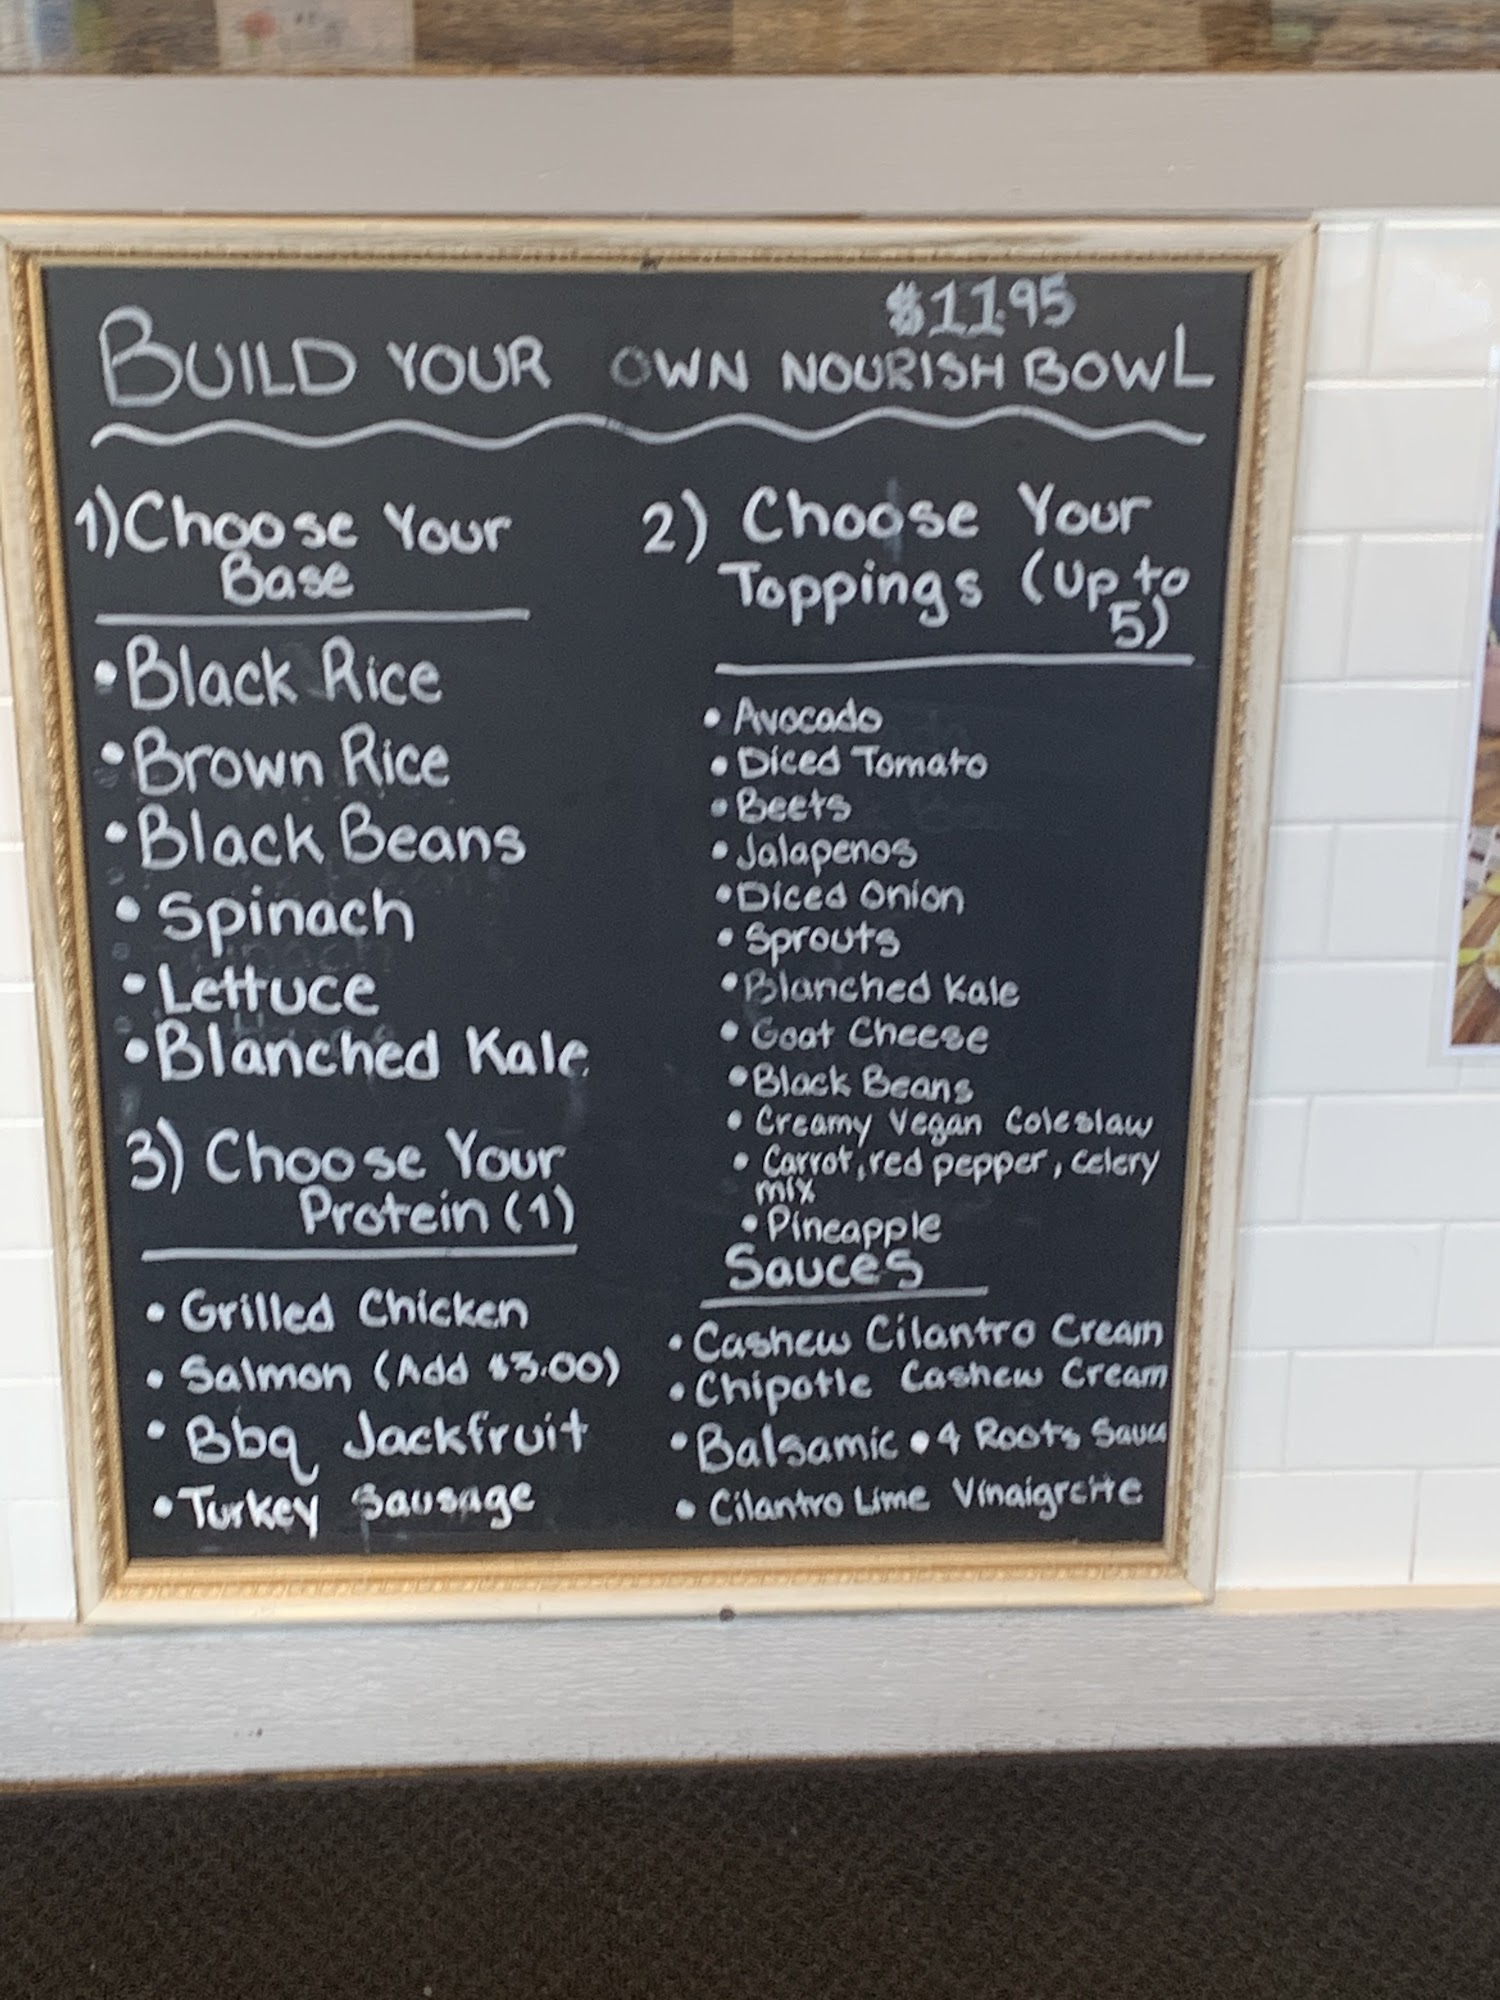 $11.95
BUILD YOUR OWN NOURISH BOWL
1) Choose Your
Base
• Black Rice
• Brown Rice
• Black Beans
• Spinach
• Lettuce
• Blanched Kale
2) Choose Your
Toppings (Up to
5)
• Avocado
• Diced Tomato
• Beets
• Jalapenos
• Diced Onion
• Sprouts
• Blanched Kale
• Goat Cheese
• Black Beans
• Creamy Vegan Coleslaw
• Carrot, red pepper, celery
mix
• Pineapple
3) Choose Your
Protein (1)
• Grilled Chicken
• Salmon (Add $3.00)
• Bbq Jackfruit
• Turkey Sausage
Sauces
• Cashew Cilantro Cream
• Chipotle Cashew Cream
• Balsamic • 4 Roots Sauce
• Cilantro Lime Vinaigrette